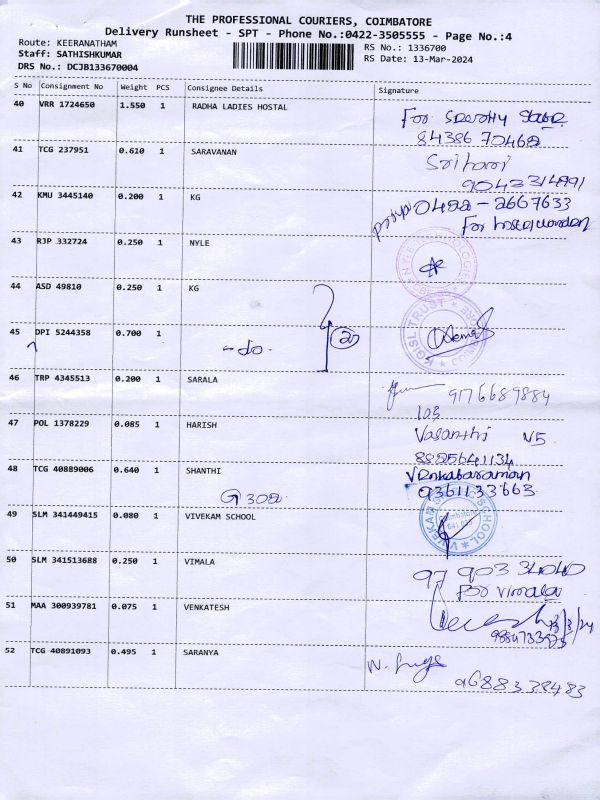 THE PROFESSIONAL COURIERS, COIMBATORE
Delivery Runsheet - SPT - Phone No.:0422-3505555 - Page No.:4
Route: KEERANATHAM
Staff: SATHISHKUMAR
DRS No.: DCJB133670004
RS No.: 1336700
RS Date: 13-Mar-2024
S No Consignment No Weight PCS Consignee Details Signature
40 VRR 1724650 1.550 1 RADHA LADIES HOSTAL
For Security
84386 70462
41 TCG 237951 0.610 1 SARAVANAN
Srihari
42 KMU 3445140 0.200 1 KG
0422-2667633
For
43 RJP 332724 0.250 1 NYLE
44 ASD 49810 0.250 1 KG
KGISL TRUST
45 DPI 5244358 0.700 1
-do-
2
46 TRP 4345513 0.200 1 SARALA
9176689884
103
47 POL 1378229 0.085 1 HARISH
Vasanthi N5
8825641134
48 TCG 40889006 0.640 1 SHANTHI
Venkataraman
9361133663
G 302
49 SLM 341449415 0.080 1 VIVEKAM SCHOOL
VIVEKAM SCHOOL
50 SLM 341513688 0.250 1 VIMALA
97 903 34040
For vimala
51 MAA 300939781 0.075 1 VENKATESH
13/3/24
52 TCG 40891093 0.495 1 SARANYA
9688338483